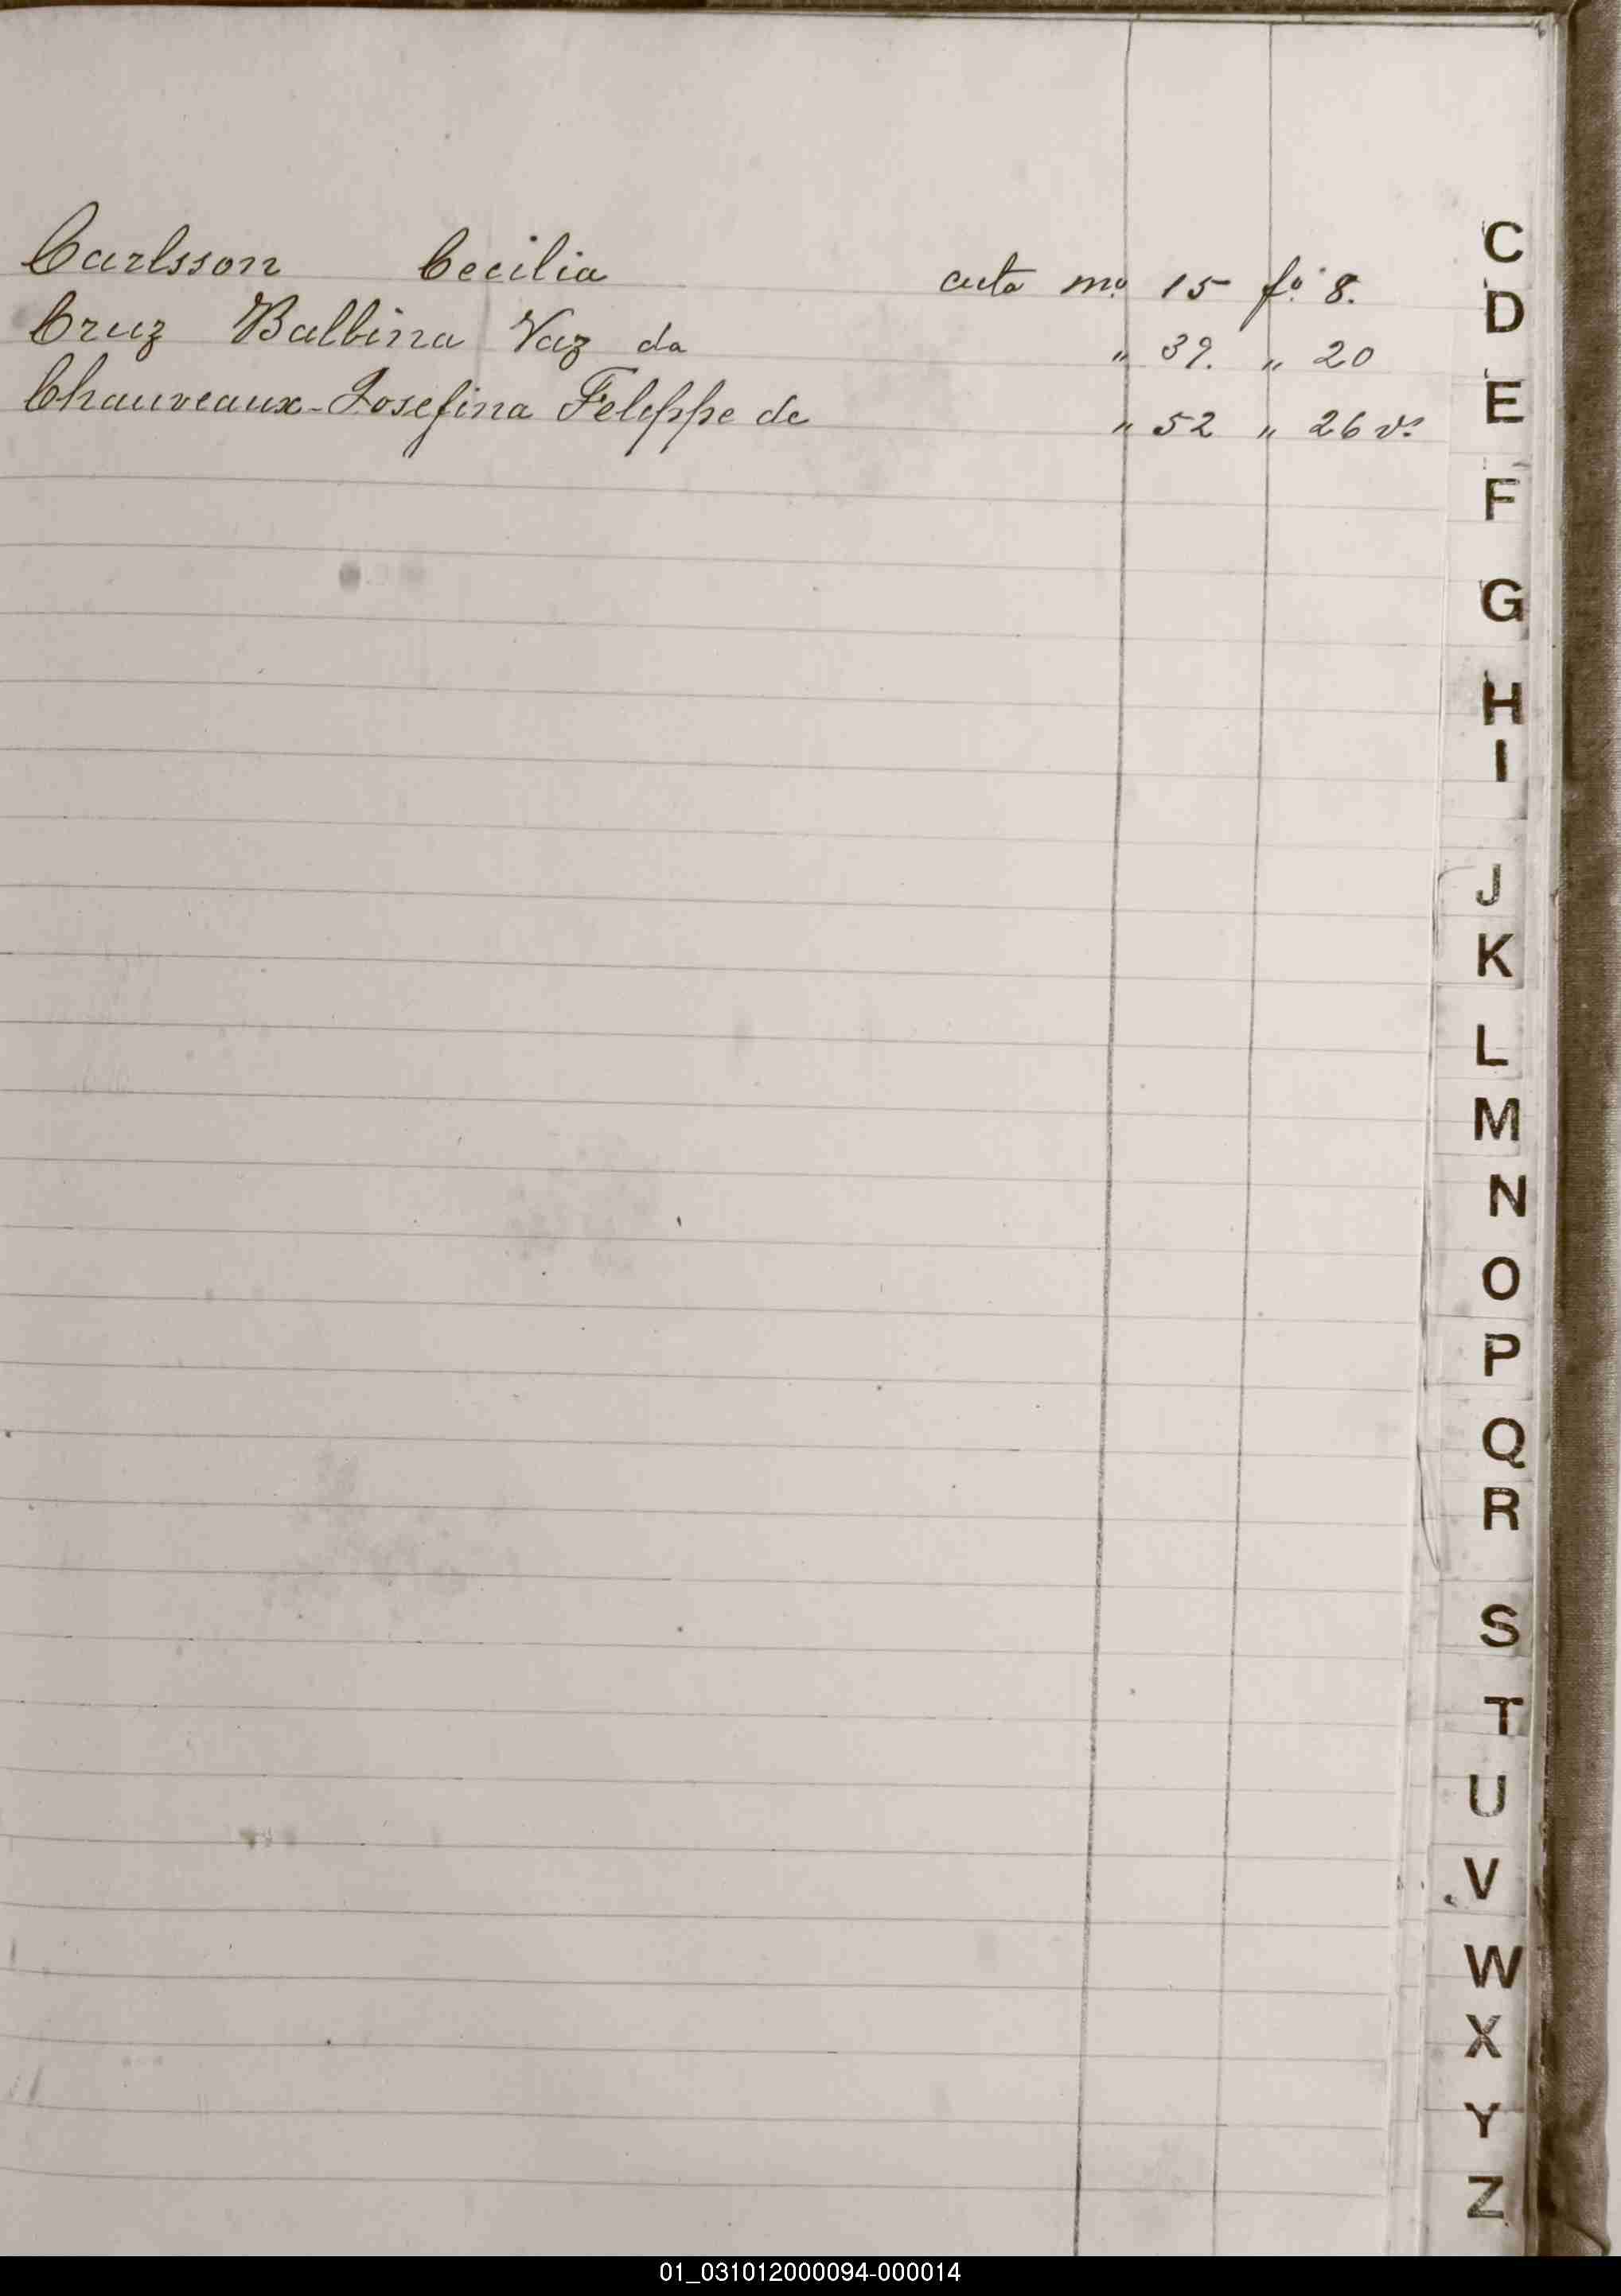 Carlsson Cecilia acta nº 15 fº 8.
Cruz Balbina Vaz da " 39. " 20
Chauveaux-Josefina Felippe de " 52 " 26 vº
C
D
E
F
G
H
I
J
K
L
M
N
O
P
Q
R
S
T
U
V
W
X
Y
Z
01_031012000094-000014